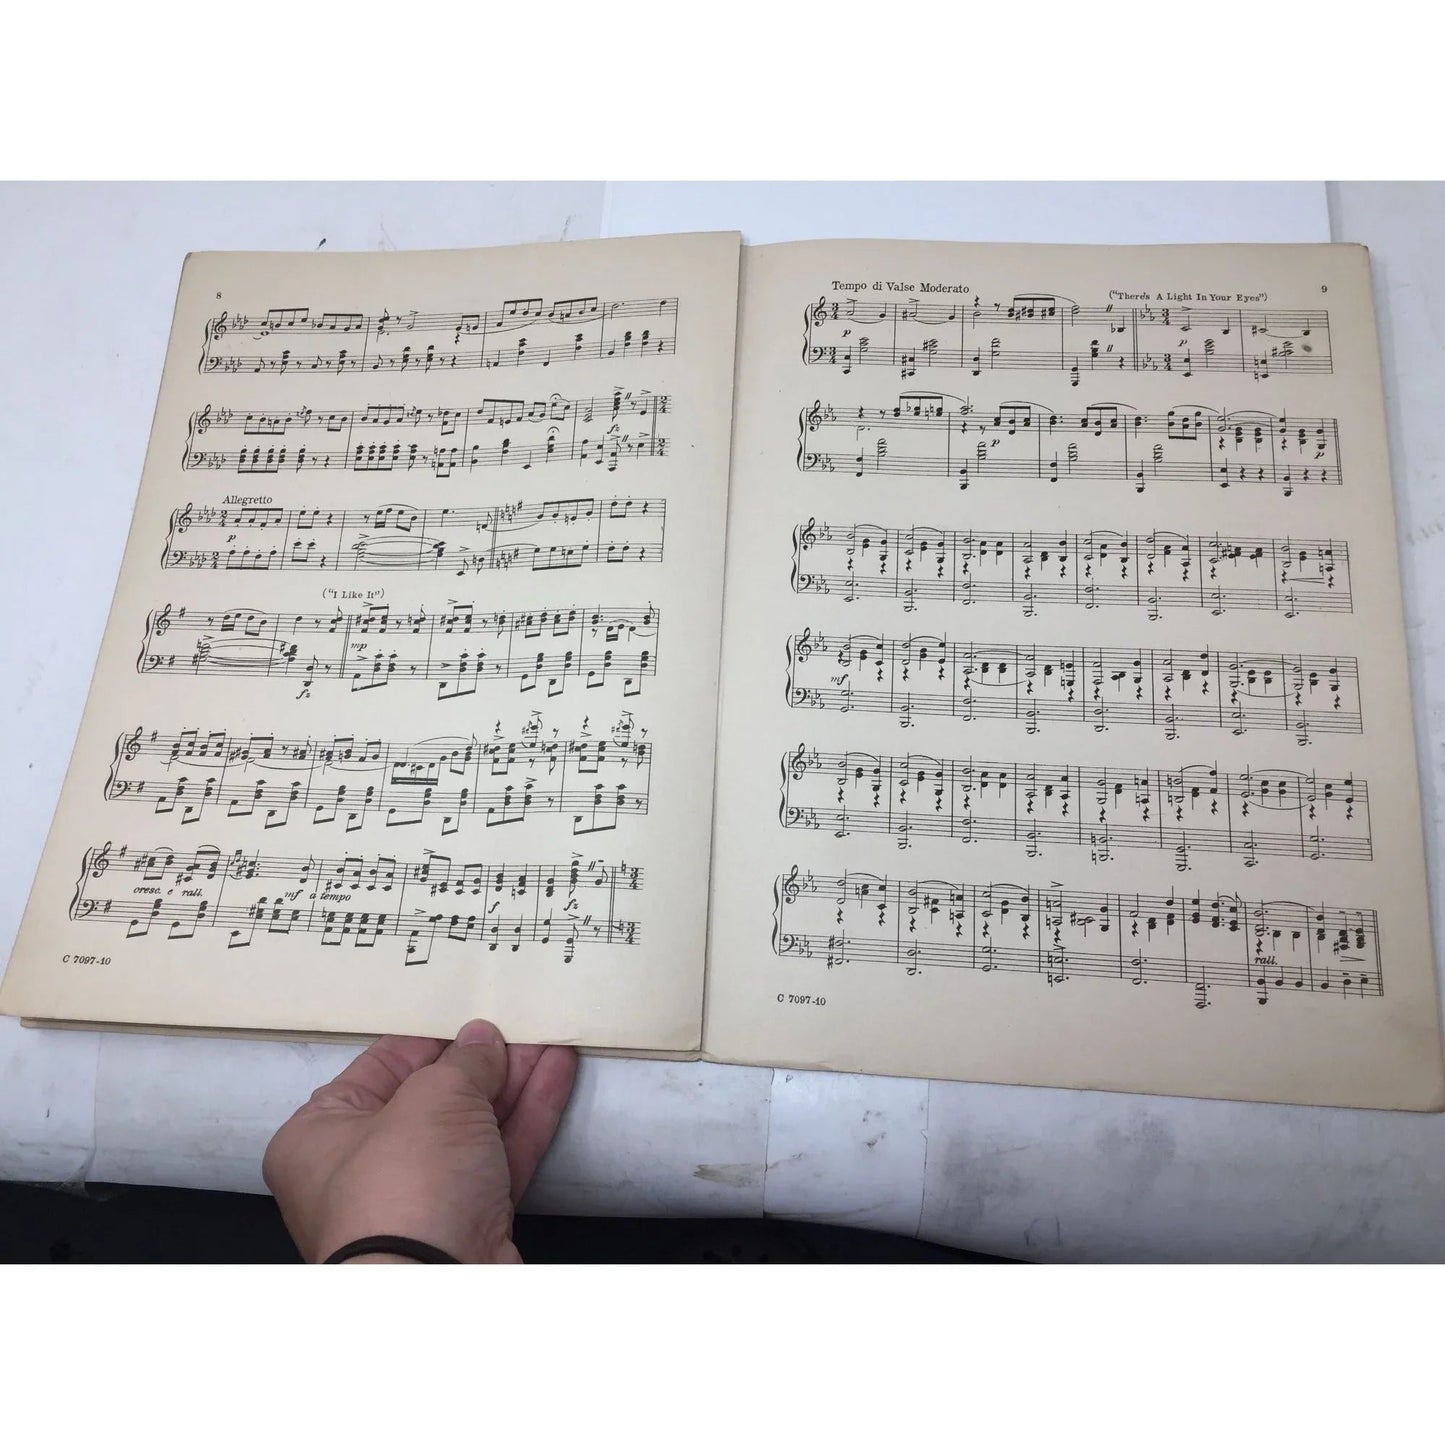 8
Allegretto
p
("I Like It")
mp
fz
cresc. e rall.
mf a tempo
f
fz
C 7097-10
9
Tempo di Valse Moderato
("There's A Light In Your Eyes")
p
p
p
p
mf
rall.
C 7097-10